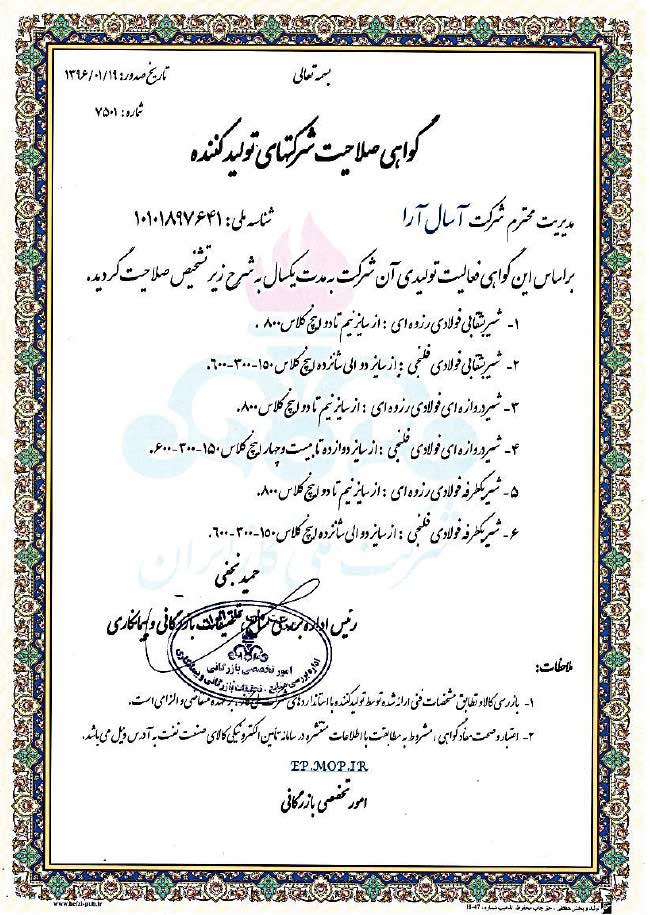 بسمه تعالی
تاریخ صدور: ۱۳۹۶/۰۱/۱۹
شماره: ۷۵۰۱
گواهی صلاحیت شرکتهای تولید کننده
مدیریت محترم شرکت آسال آرا شناسه ملی: ۱۰۱۰۱۸۹۷۶۴۱
براساس این گواهی فعالیت تولیدی آن شرکت به مدت یکسال به شرح زیر تشخیص صلاحیت گردید.
۱- شیر بشقابی فولادی رزوه ای : از سایز نیم تا دو اینچ کلاس ۸۰۰ .
۲- شیر بشقابی فولادی فلنجی : از سایز دو الی شانزده اینچ کلاس ۱۵۰-۳۰۰-۶۰۰.
۳- شیر دروازه ای فولادی رزوه ای : از سایز نیم تا دو اینچ کلاس ۸۰۰.
۴- شیر دروازه ای فولادی فلنجی : از سایز دوازده تا بیست و چهار اینچ کلاس ۱۵۰-۳۰۰-۶۰۰.
۵- شیر یکطرفه فولادی رزوه ای : از سایز نیم تا دو اینچ کلاس ۸۰۰.
۶- شیر یکطرفه فولادی فلنجی : از سایز دو الی شانزده اینچ کلاس ۱۵۰-۳۰۰-۶۰۰.
شرکت ملی گاز ایران
حمید نجفی
رئیس اداره بررسی منابع، تحقیقات بازرگانی و پیمانکاری
امور تخصصی بازرگانی
اداره بررسی منابع - تحقیقات بازرگانی و پیمانکاری
ملاحظات:
۱- بازرسی کالا و تطابق مشخصات فنی ارائه شده توسط تولید کننده با استانداردهای شرکت ملی گاز بر عهده متقاضی و الزامی است.
۲- اعتبار و صحت مفاد گواهی ، مشروط به مطابقت با اطلاعات منتشره در سامانه تامین الکترونیکی کالای صنعت نفت به آدرس ذیل می باشد.
EP.MOP.IR
امور تخصصی بازرگانی
www.hefzi-pub.ir